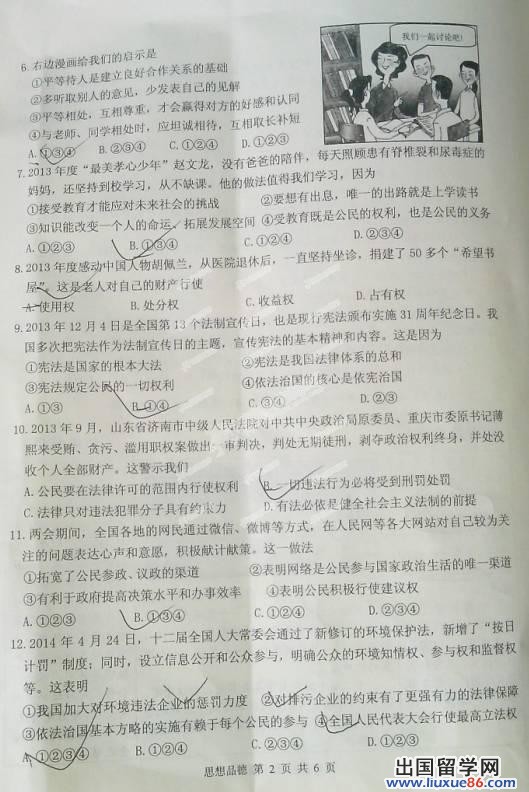 我们一起讨论吧!
6.右边漫画给我们的启示是
①平等待人是建立良好合作关系的基础
②多听取别人的意见，少发表自己的见解
③平等相处，互相尊重，才会赢得对方的好感和认同
④与老师、同学相处时，应坦诚相待，互相取长补短
A.①③④ B.②③④ C.①②④ D.①②③
7.2013年度“最美孝心少年”赵文龙，没有爸爸的陪伴，每天照顾患有脊椎裂和尿毒症的
妈妈，还坚持到校学习，从不缺课。他的做法值得我们学习，因为
①接受教育才能应对未来社会的挑战 ②要想有出息，唯一的出路就是上学读书
③知识能改变一个人的命运、拓展发展空间 ④受教育既是公民的权利，也是公民的义务
A.①②③ B.①③④ C.①②④ D.②③④
8.2013年度感动中国人物胡佩兰，从医院退休后，一直坚持坐诊，捐建了50多个“希望书
屋”。这是老人对自己的财产行使
A.使用权 B.处分权 C.收益权 D.占有权
9.2013年12月4日是全国第13个法制宣传日，也是现行宪法颁布实施31周年纪念日。我
国多次把宪法作为法制宣传日的主题，宣传宪法的基本精神和内容。这是因为
①宪法是国家的根本大法 ②宪法是我国法律体系的总和
③宪法规定公民的一切权利 ④依法治国的核心是依宪治国
A.①③ B.①④ C.③④ D.②④
10.2013年9月，山东省济南市中级人民法院对中共中央政治局原委员、重庆市委原书记薄
熙来受贿、贪污、滥用职权案做出一审判决，判处无期徒刑，剥夺政治权利终身，并处没
收个人全部财产。这警示我们
A.公民要在法律许可的范围内行使权利 B.一切违法行为必将受到刑罚处罚
C.法律只对违法犯罪分子具有约束力 D.有法必依是健全社会主义法制的前提
11.两会期间，全国各地的网民通过微信、微博等方式，在人民网等各大网站对自己较为关
注的问题表达心声和意愿，积极献计献策。这一做法
①拓宽了公民参政、议政的渠道 ②表明网络是公民参与国家政治生活的唯一渠道
③有利于政府提高决策水平和办事效率 ④表明公民积极行使建议权
A.①②③ B.①③④ C.①②④ D.②③④
12.2014年4月24日，十二届全国人大常委会通过了新修订的环境保护法，新增了“按日
计罚”制度；同时，设立信息公开和公众参与，明确公众的环境知情权、参与权和监督权
等。这表明
①我国加大对环境违法企业的惩罚力度 ②对排污企业的约束有了更强有力的法律保障
③依法治国基本方略的实施有赖于每个公民的参与 ④全国人民代表大会行使最高立法权
A.①②③④ B.①②④ C.①③④ D.①②③
思想品德 第2页 共6页
出国留学网
www.liuxue86.com